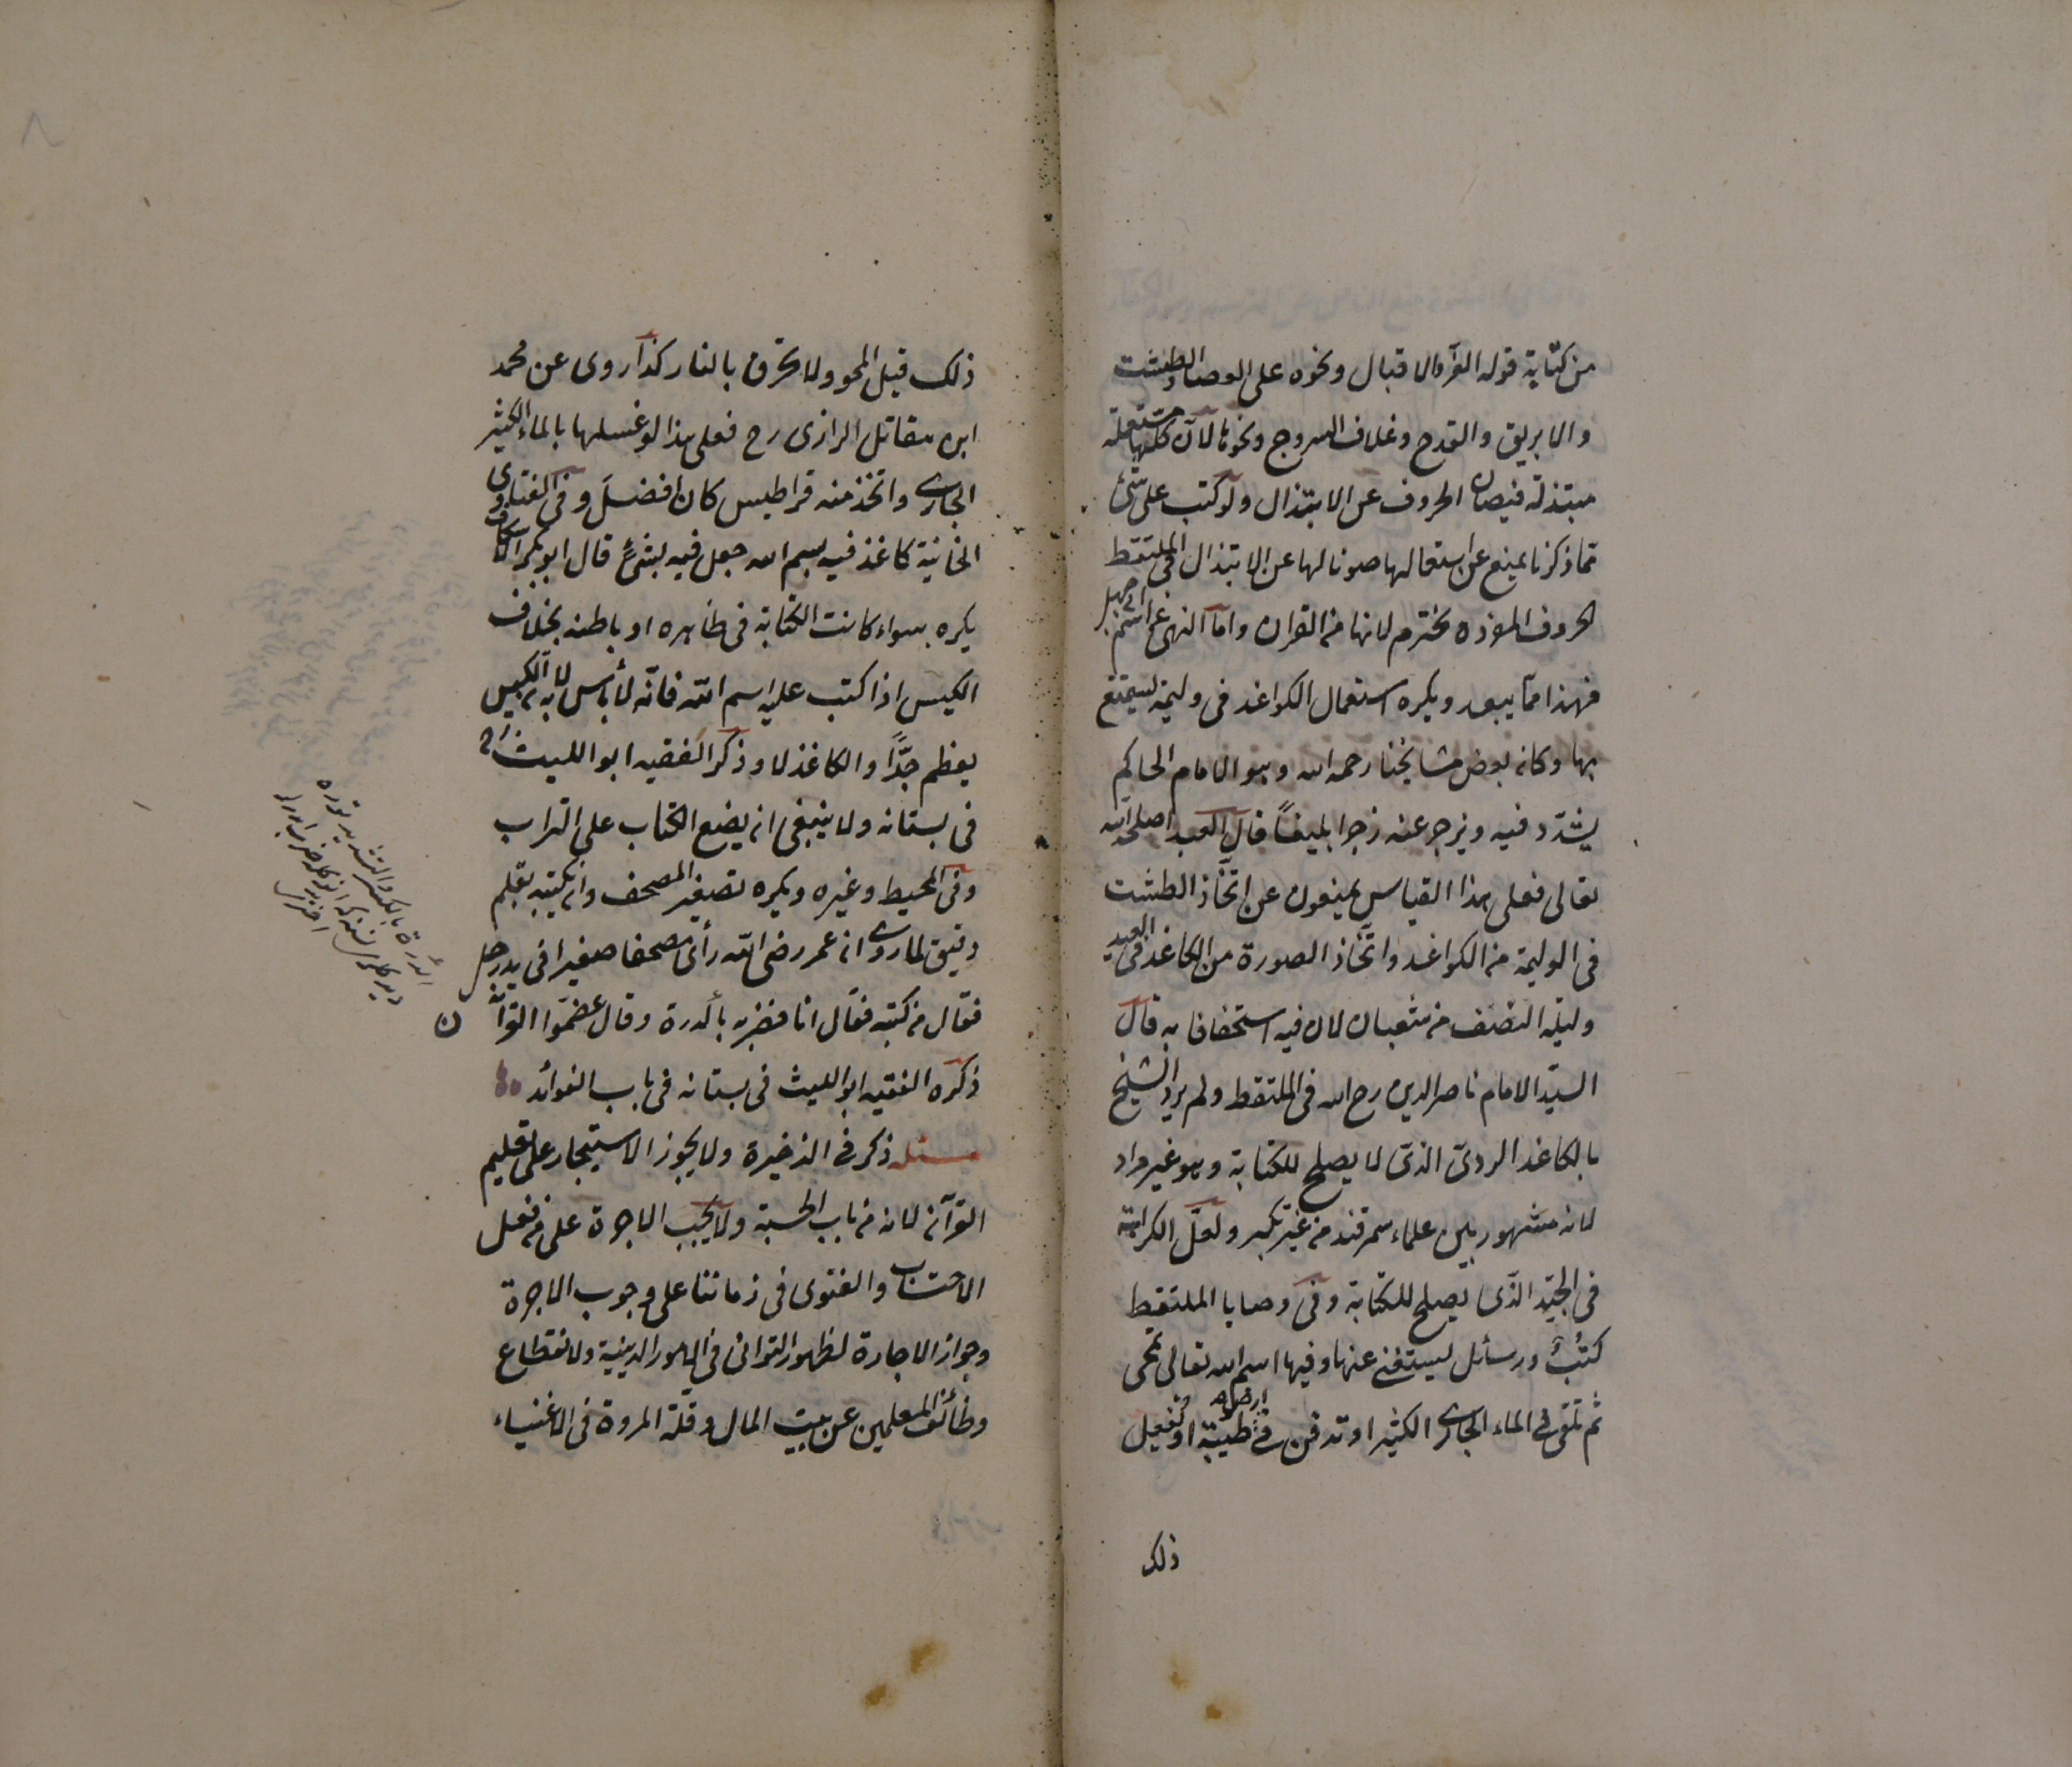 من كتابة قوله العز والاقبال ونحوه على العصا والطشت
والابريق والقدح وغلاف السروج ونحوها لان كلها مستعملة
مبتذلة فيصان الحروف عن الابتذال ولو كتب على شئ
مما ذكرنا يمنع عن استعمالها صونا لها عن الابتذال في الملتقط
الحروف المفردة محترم لانها من القران واما النهي عن اسم ابي جهل
فهذا مما يبعد ويكره استعمال الكواغد في وليمة ليتمتع
بها وكان بعض مشايخنا رحمه الله وهو الامام الحاكم
يشدّد فيه ويزجر عنه زجرا بليغاً قال العبد اصلحه الله
تعالى فعلى هذا القياس يمنعون عن اتّخاذ الطشت
في الوليمة من الكواغد واتّخاذ الصورة من الكاغد في العيد
وليلة النصف من شعبان لان فيه استخفافا به قال
السيّد الامام ناصر الدين رح الله في الملتقط ولم يرد الشيخ
بالكاغد الردئ الذى لا يصلح للكتابة وهو غير مراد
لانه مشهور بين علماء سمرقند من غير نكير ولعلّ الكراهة
في الجيّد الذى يصلح للكتابة وفى وصايا الملتقط
كتبٌ ورسائل يستغنى عنها وفيها اسم الله تعالى تمحى
ثم تلقى فى الماء الجارى الكثير او تدفن فى ارض طيبة او تفعيل
ذلك
ذلك قبل المحو ولا تحرق بالنار كذا روى عن محمد
ابن مقاتل الرازى رح فعلى هذا لو غسلها بالماء الكثير
الجارى واتخذ منه قراطيس كان افضل وفى الفتاوى
الخانية كاغذ فيه بسم الله جعل فيه شئ قال ابو بكر الاسكاف
يكره سواء كانت الكتابة في ظاهره او باطنه بخلاف
الكيس اذا كتب عليه اسم الله فانّه لا بأس به لانّ الكيس
يعظم جدًّا والكاغذ لا وذكر الفقيه ابو الليث رح
فى بستانه ولا ينبغى ان يضع الكتاب على التراب
وفى المحيط وغيره ويكره تصغير المصحف وان يكتبه بقلم
دقيق لما روى ان عمر رضى الله رأى مصحفا صغيرا فى يد رجل
فقال من كتبه فقال انا فضربه بالدرة وقال عضمّوا القرآن
ذكره الفقيه ابو الليث فى بستانه فى باب الفوائد
مسئله ذكر فى الذخيرة ولا يجوز الاستيجار على تعليم
القرآن لانه من باب الحسبة ولا يجب الاجرة على من فعل
الاحتساب والفتوى فى زماننا على وجوب الاجرة
وجواز الاجارة لظهور التوانى فى الامور الدينية ولانقطاع
وظائف المعلمين عن بيت المال وقلة المروة فى الاغنياء
الدرّة بالكسر والتشديد